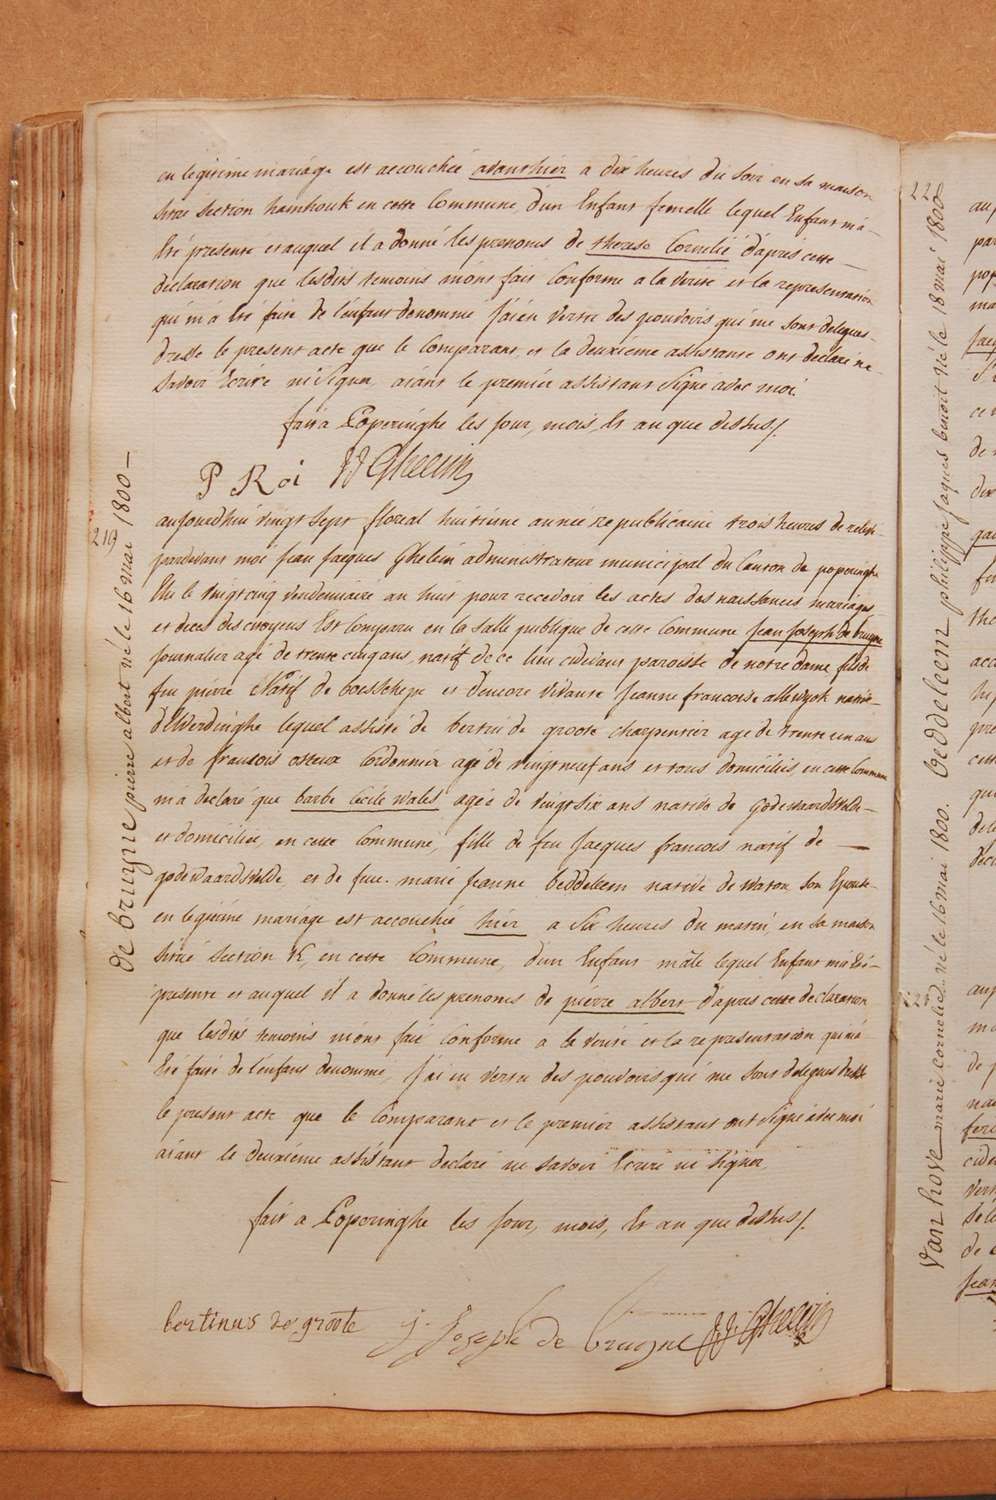 en legitime mariage est accouchée avanthier a dix heures du soir en sa maison
sitée section hamhouk en cette Commune d'un Enfant femelle lequel Enfant m'a
été presente et auquel il a donné les prenoms de therese Cornelie d'apres cette
declaration que lesdits temoins m'ont fait Conforme a la verité et la representation
qui m'a été faite de l'enfant denommé j'ai en vertu des pouvoirs qui me sont delegués
dressé le present acte que le Comparant et la deuxieme assistante ont declaré ne
savoir ecrire ni signer, aiant le premier assistant signé avec moi
fait a Poperinghe les jour, mois, et an que dessus /.
P Roi JJ Ghelein
219
de bruyne pierre albert né le 16 mai 1800 —
aujourdhui vingt sept floreal huitieme année republicaine trois heures de relevé
pardevant moi Jean Jaques Ghelein administrateur municipal du Canton de poperinghe
élu le vingt cinq vendemiaire an huit pour recevoir les actes des naissances mariages
et deces des citoyens Est Comparu en la salle publique de cette Commune Jean Joseph de bruyne
journalier agé de trente cinq ans, natif de ce lieu cidevant paroisse de notre dame fils de
feu pierre Natif de boesschepe et d'encore vivante Jeanne francoise allewyck native
d'elverdinghe lequel assisté de bertin de groote charpentier agé de trente un ans
et de francois osteux Cordonnier agé de vingt neuf ans et tous domiciliés en cette Commune
m'a declaré que barbe Cecile wales agée de vingt six ans native de godewaerdsvelde
et domiciliée, en cette Commune, fille de feu Jacques francois natif de —
godewaardsvelde, et de feue marie Jeanne beddeleem native de waton son Epouse
en legitime mariage est accouchée hier a six heures du matin, en sa maison
sitée section K, en cette Commune, d'un Enfant mâle lequel Enfant m'a été
presente et auquel il a donné les prenoms de pierre albert d'apres cette declaration
que lesdits temoins m'ont fait Conforme a la verité et la representation qui m'a
été faite de l'enfant denommé, j'ai en vertu des pouvoirs qui me sont delegués dressé
le present acte que le Comparant et le premier assistant ont signé avec moi
aiant le deuxieme assistant declaré ne savoir Ecrire ni signer
fait a Poperinghe les jour, mois, et an que dessus /.
bertinus de groote j. Joseph de bruyne JJ. Ghelein
228
beddeleem philippe jaques benoit né le 18 mai 1800
van hove marie cornelie né le 16 mai 1800.